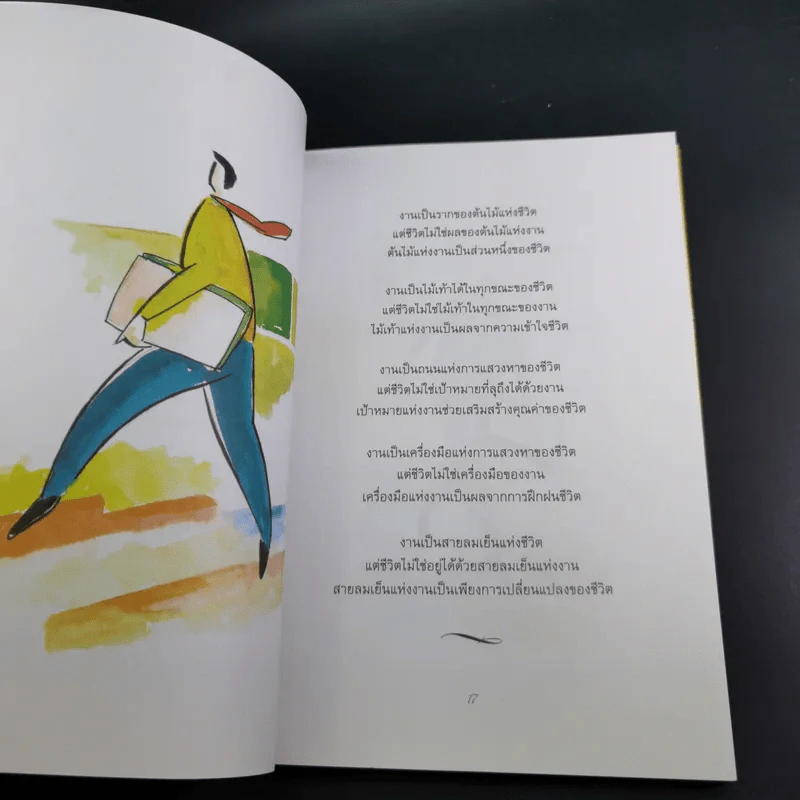 งานเป็นรากของต้นไม้แห่งชีวิต
แต่ชีวิตไม่ใช่ผลของต้นไม้แห่งงาน
ต้นไม้แห่งงานเป็นส่วนหนึ่งของชีวิต
งานเป็นไม้เท้าได้ในทุกขณะของชีวิต
แต่ชีวิตไม่ใช่ไม้เท้าในทุกขณะของงาน
ไม้เท้าแห่งงานเป็นผลจากความเข้าใจชีวิต
งานเป็นถนนแห่งการแสวงหาของชีวิต
แต่ชีวิตไม่ใช่เป้าหมายที่ลุถึงได้ด้วยงาน
เป้าหมายแห่งงานช่วยเสริมสร้างคุณค่าของชีวิต
งานเป็นเครื่องมือแห่งการแสวงหาของชีวิต
แต่ชีวิตไม่ใช่เครื่องมือของงาน
เครื่องมือแห่งงานเป็นผลจากการฝึกฝนชีวิต
งานเป็นสายลมเย็นแห่งชีวิต
แต่ชีวิตไม่ใช่อยู่ได้ด้วยสายลมเย็นแห่งงาน
สายลมเย็นแห่งงานเป็นเพียงการเปลี่ยนแปลงของชีวิต
17